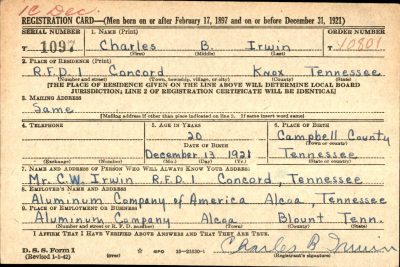 1C Dec.
REGISTRATION CARD—(Men born on or after February 17, 1897 and on or before December 31, 1921)
SERIAL NUMBER 1. NAME (Print) ORDER NUMBER
T 1097 Charles B. Irwin
(First) (Middle) (Last)
2. PLACE OF RESIDENCE (Print)
R.F.D. 1 Concord Knox Tennessee
(Number and street) (Town, township, village, or city) (County) (State)
[THE PLACE OF RESIDENCE GIVEN ON THE LINE ABOVE WILL DETERMINE LOCAL BOARD
JURISDICTION; LINE 2 OF REGISTRATION CERTIFICATE WILL BE IDENTICAL]
3. MAILING ADDRESS
Same
[Mailing address if other than place indicated on line 2. If same insert word same]
4. TELEPHONE 5. AGE IN YEARS 6. PLACE OF BIRTH
20 Campbell County
DATE OF BIRTH (Town or county)
December 13 1921 Tennessee
(Exchange) (Number) (Mo.) (Day) (Yr.) (State or country)
7. NAME AND ADDRESS OF PERSON WHO WILL ALWAYS KNOW YOUR ADDRESS
Mr. C.W. Irwin R.F.D. 1 Concord, Tennessee
8. EMPLOYER'S NAME AND ADDRESS
Aluminum Company of America Alcoa, Tennessee
9. PLACE OF EMPLOYMENT OR BUSINESS
Aluminum Company Alcoa Blount Tenn.
(Number and street or R. F. D. number) (Town) (County) (State)
I AFFIRM THAT I HAVE VERIFIED ABOVE ANSWERS AND THAT THEY ARE TRUE.
D. S. S. Form 1
(Revised 1-1-42) GPO 16-21630-1 Charles B Irwin
(Registrant's signature)